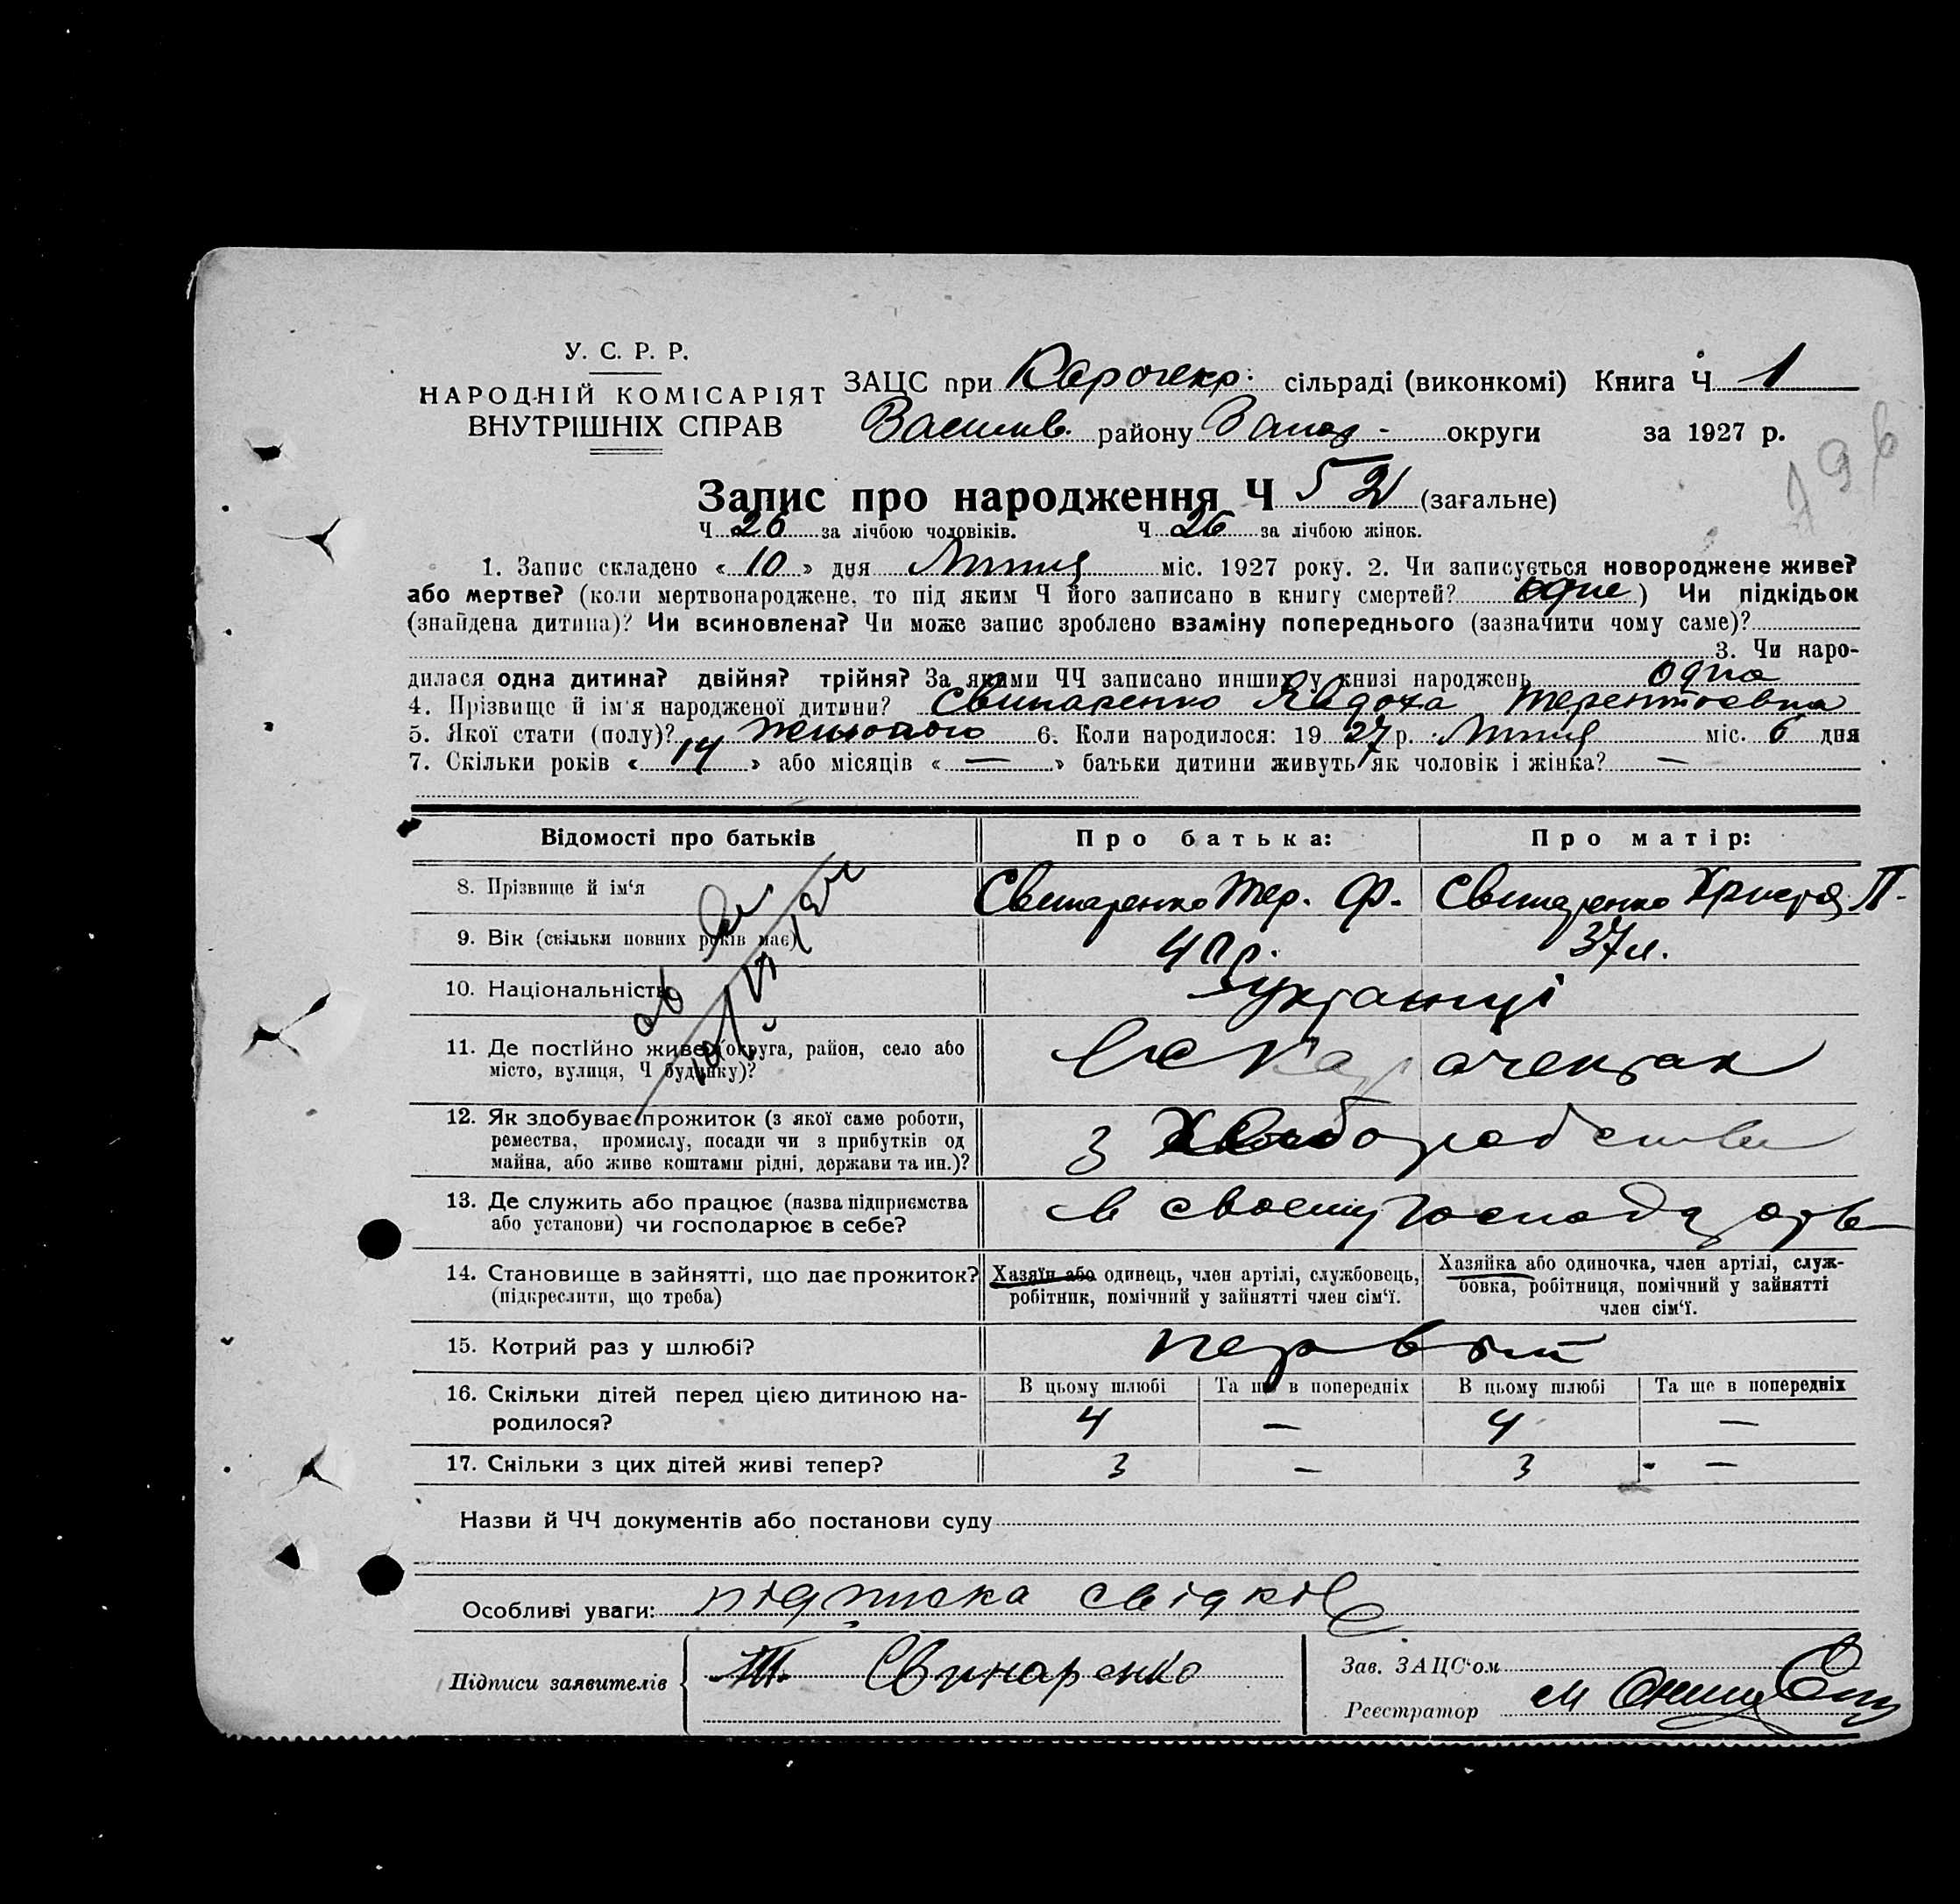 У. С. Р. Р.
НАРОДНІЙ КОМІСАРІЯТ
ВНУТРІШНІХ СПРАВ
ЗАЦС при сільраді (виконкомі) Книга Ч. 1
Василів. району Запоз- округи за 1927 р.
Запис про народження Ч 52 (загальне)
Ч 26 за лічбою чоловіків. Ч 26 за лічбою жінок.
1. Запис складено « 10 » дня Липця міс. 1927 року. 2. Чи записується новороджене живе?
або мертве? (коли мертвонароджене, то під яким Ч його записано в книгу смертей? ) Чи підкідьок
(знайдена дитина)? Чи всиновлена? Чи може запис зроблено взаміну попереднього (зазначити чому саме)?
3. Чи наро-
дилася одна дитина? двійня? трійня? За якими ЧЧ записано инших у книзі народжень одна
4. Прізвище й ім'я народженої дитини? Свинаренко Явдоха Терентоєвна
5. Якої стати (полу)? 6. Коли народилося: 19 27 р. Липця міс. 6 дня
7. Скільки років « 14 » або місяців « — » батьки дитини живуть як чоловік і жінка? —
Відомості про батьків
Про батька:
Про матір:
8. Прізвище й ім'я
Свинаренко Тер. Ф.
Свинаренко Христя П.
9. Вік (скільки повних років має)
40 р.
37 л.
10. Національність
українці
11. Де постійно живе (округа, район, село або
місто, вулиця, Ч будинку)?
12. Як здобуває прожиток (з якої саме роботи,
ремества, промислу, посади чи з прибутків од
майна, або живе коштами рідні, держави та ин.)?
з Хлеборобства
13. Де служить або працює (назва підприємства
або установи) чи господарює в себе?
в своєму господарстве
14. Становище в зайнятті, що дає прожиток?
(підкреслити, що треба)
Хазяїн або одинець, член артілі, службовець,
робітник, помічний у зайнятті член сім'ї.
Хазяйка або одиночка, член артілі, служ-
бовка, робітниця, помічний у зайнятті
член сім'ї.
15. Котрий раз у шлюбі?
первый
16. Скільки дітей перед цією дитиною на-
родилося?
В цьому шлюбі Та ще в попередніх В цьому шлюбі Та ще в попередніх
4 — 4 —
17. Скільки з цих дітей живі тепер?
3 — 3 —
Назви й ЧЧ документів або постанови суду
Особливі уваги: підписка свідків
Підписи заявителів
Т. Свинаренко
Зав. ЗАЦС'ом
Реєстратор